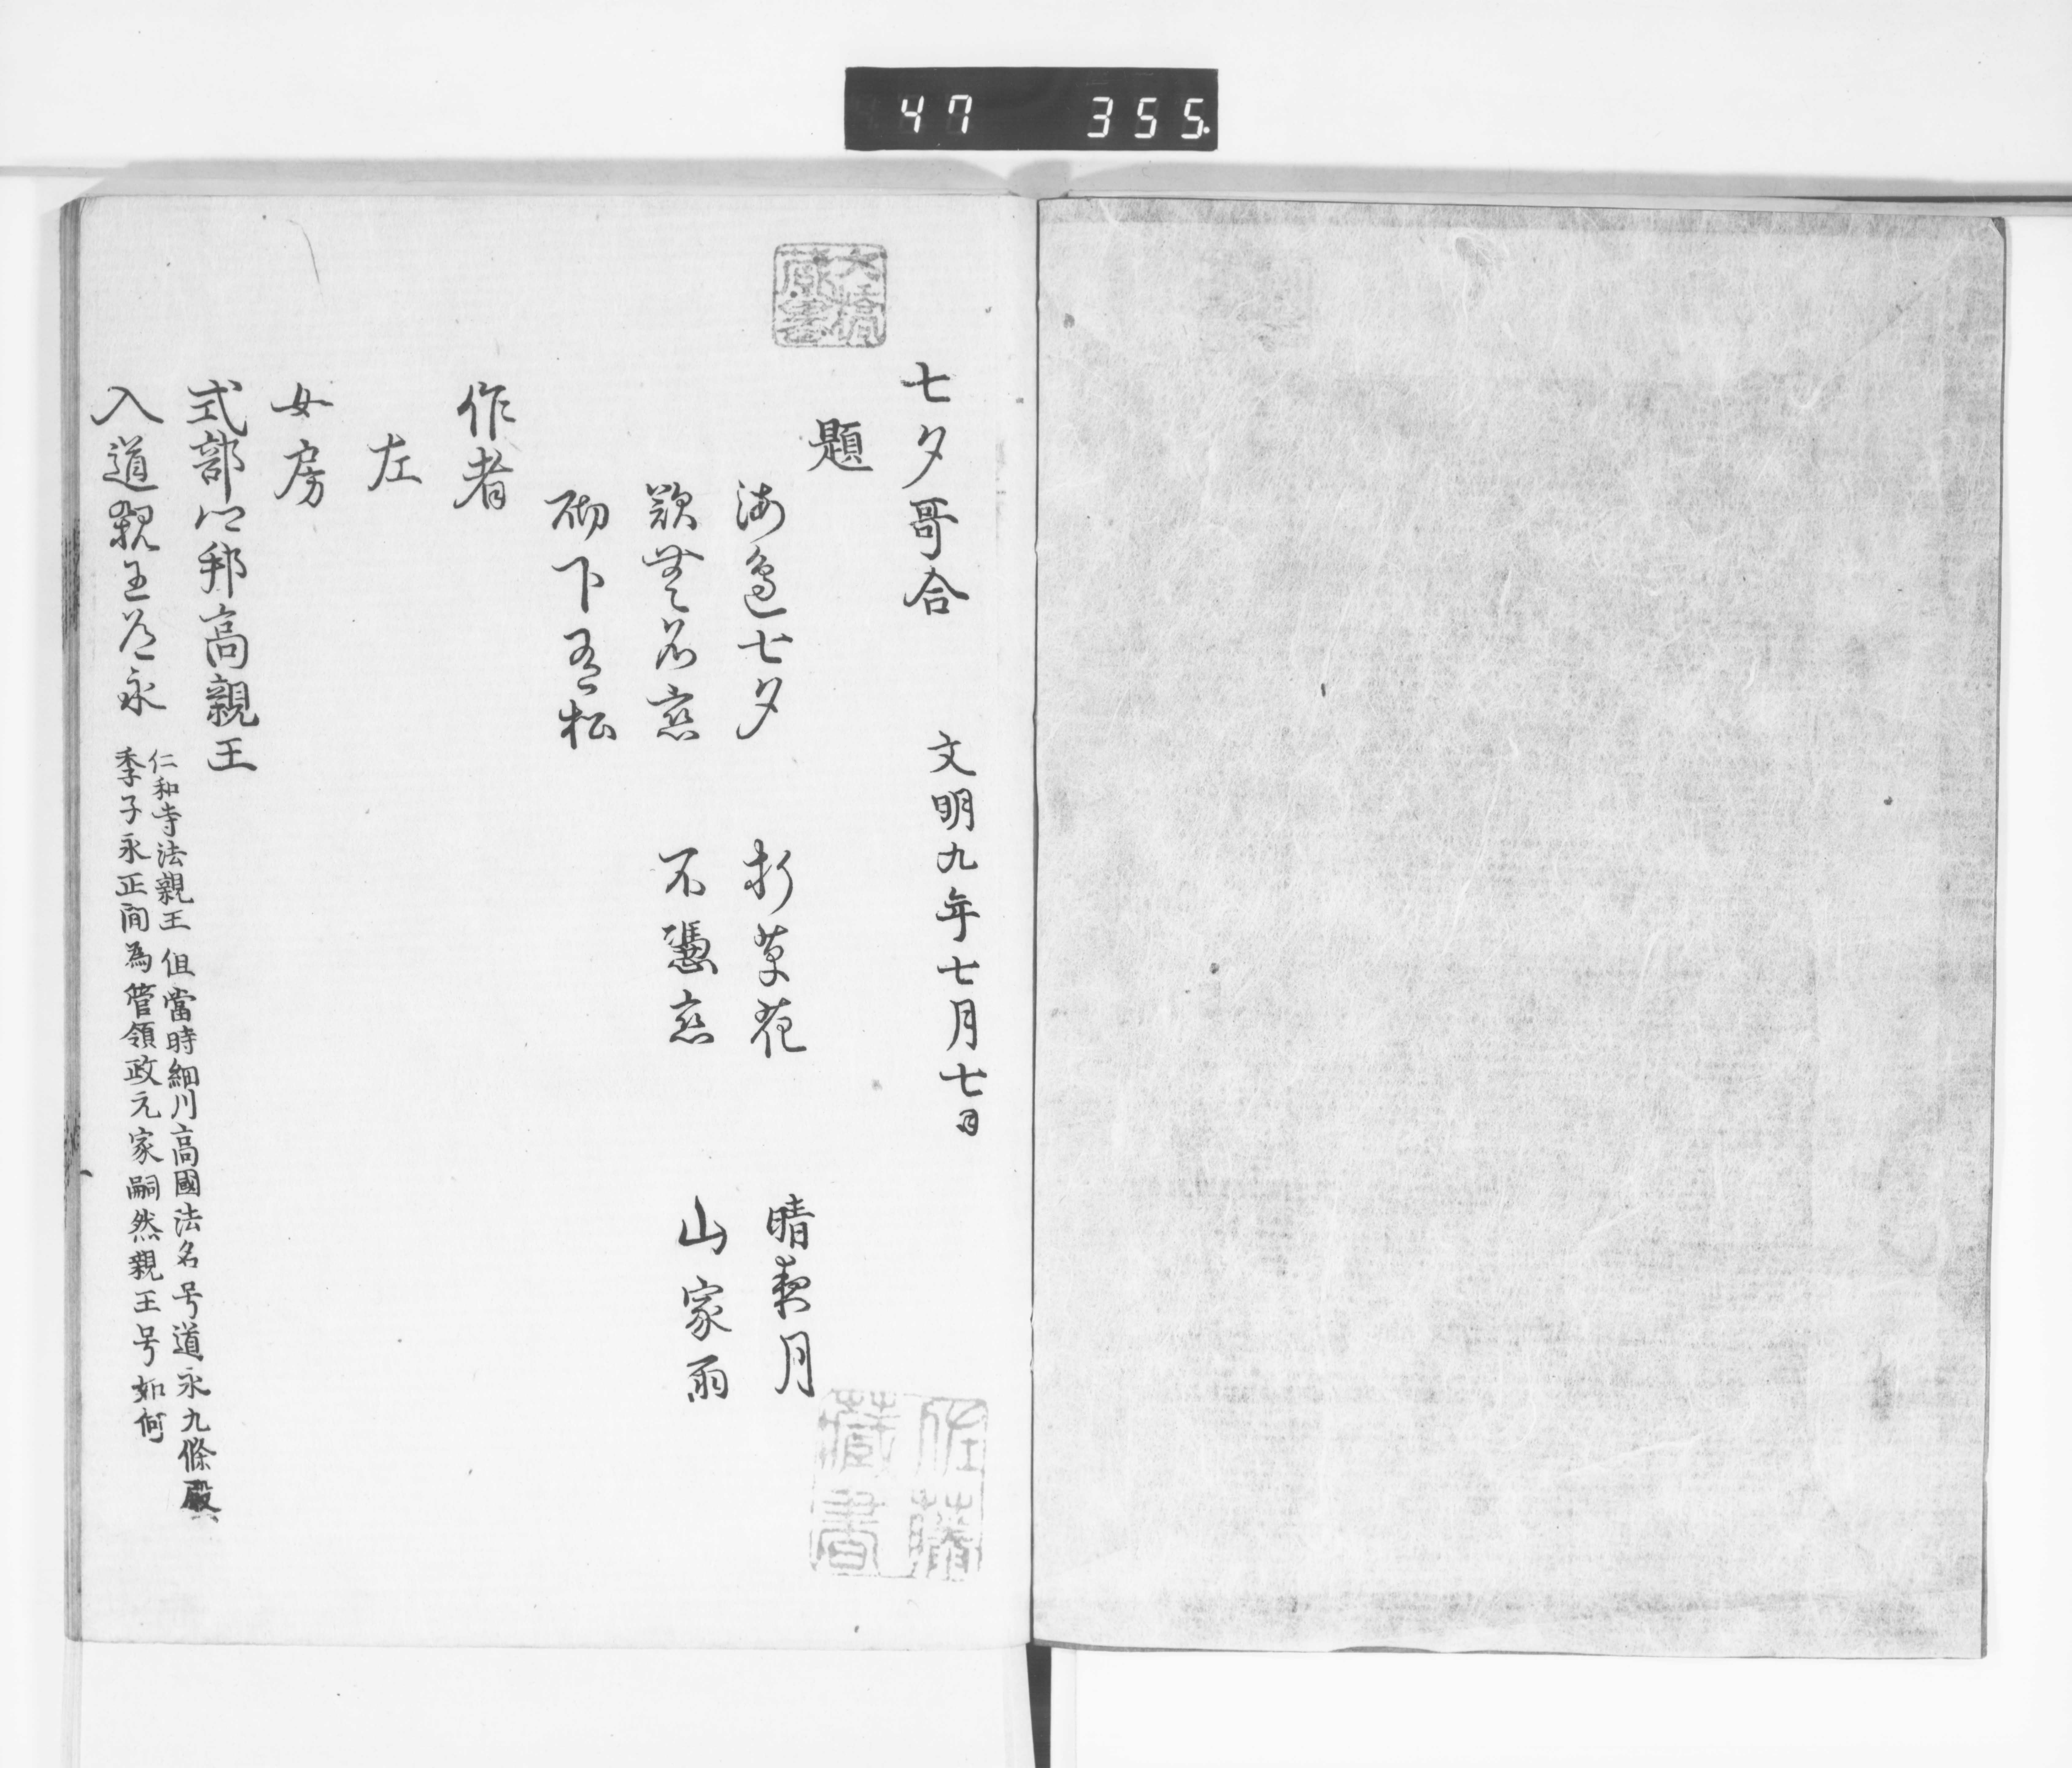 47 355
七夕哥合 文明九年七月七日
題
海邉七夕 折草花 晴契月
歎無名恋 不憑恋 山家雨
砌下有松
作者
左
女房
式部卿邦高親王
入道親王道永
仁和寺法親王 但當時細川高國法名号道永九條殿
季子永正間為管領政元家嗣然親王号如何
佐藤
藏書